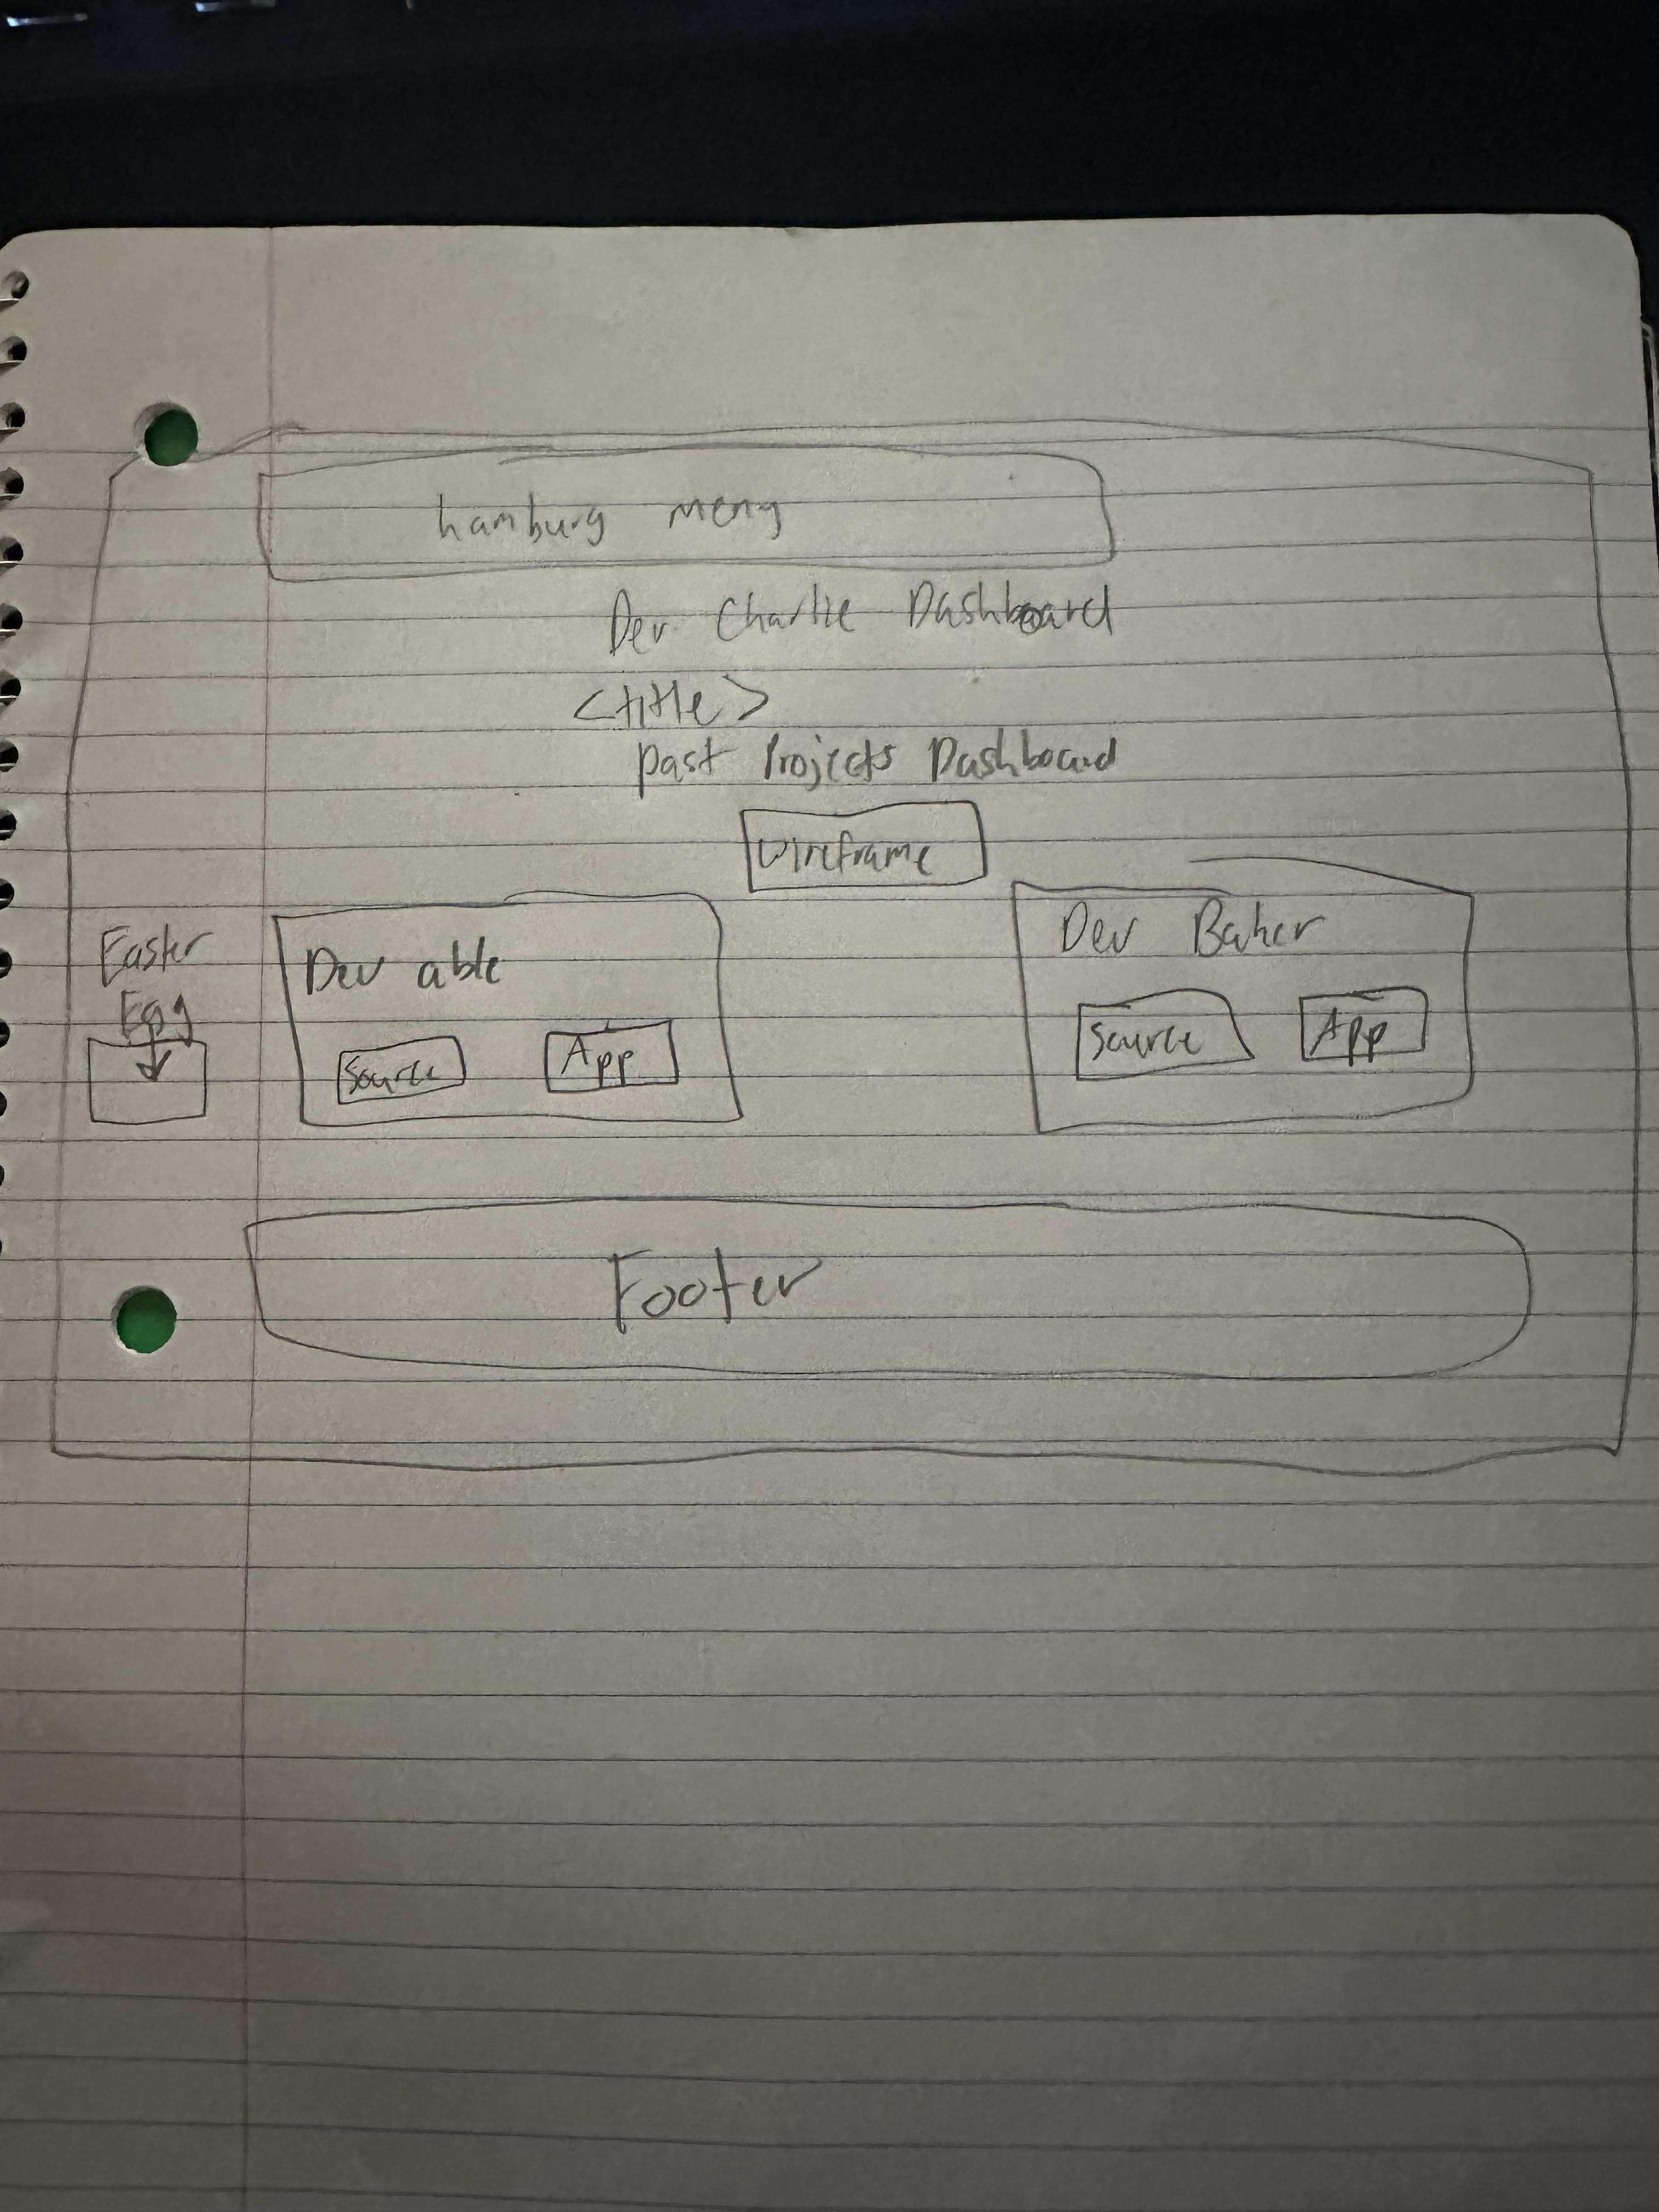 hamburg menu
Dev Charlie Dashboard
<title>
past Projects Dashboard
Wireframe
Easter
Egg
Dev able
Source
App
Dev Baker
Source
App
Footer